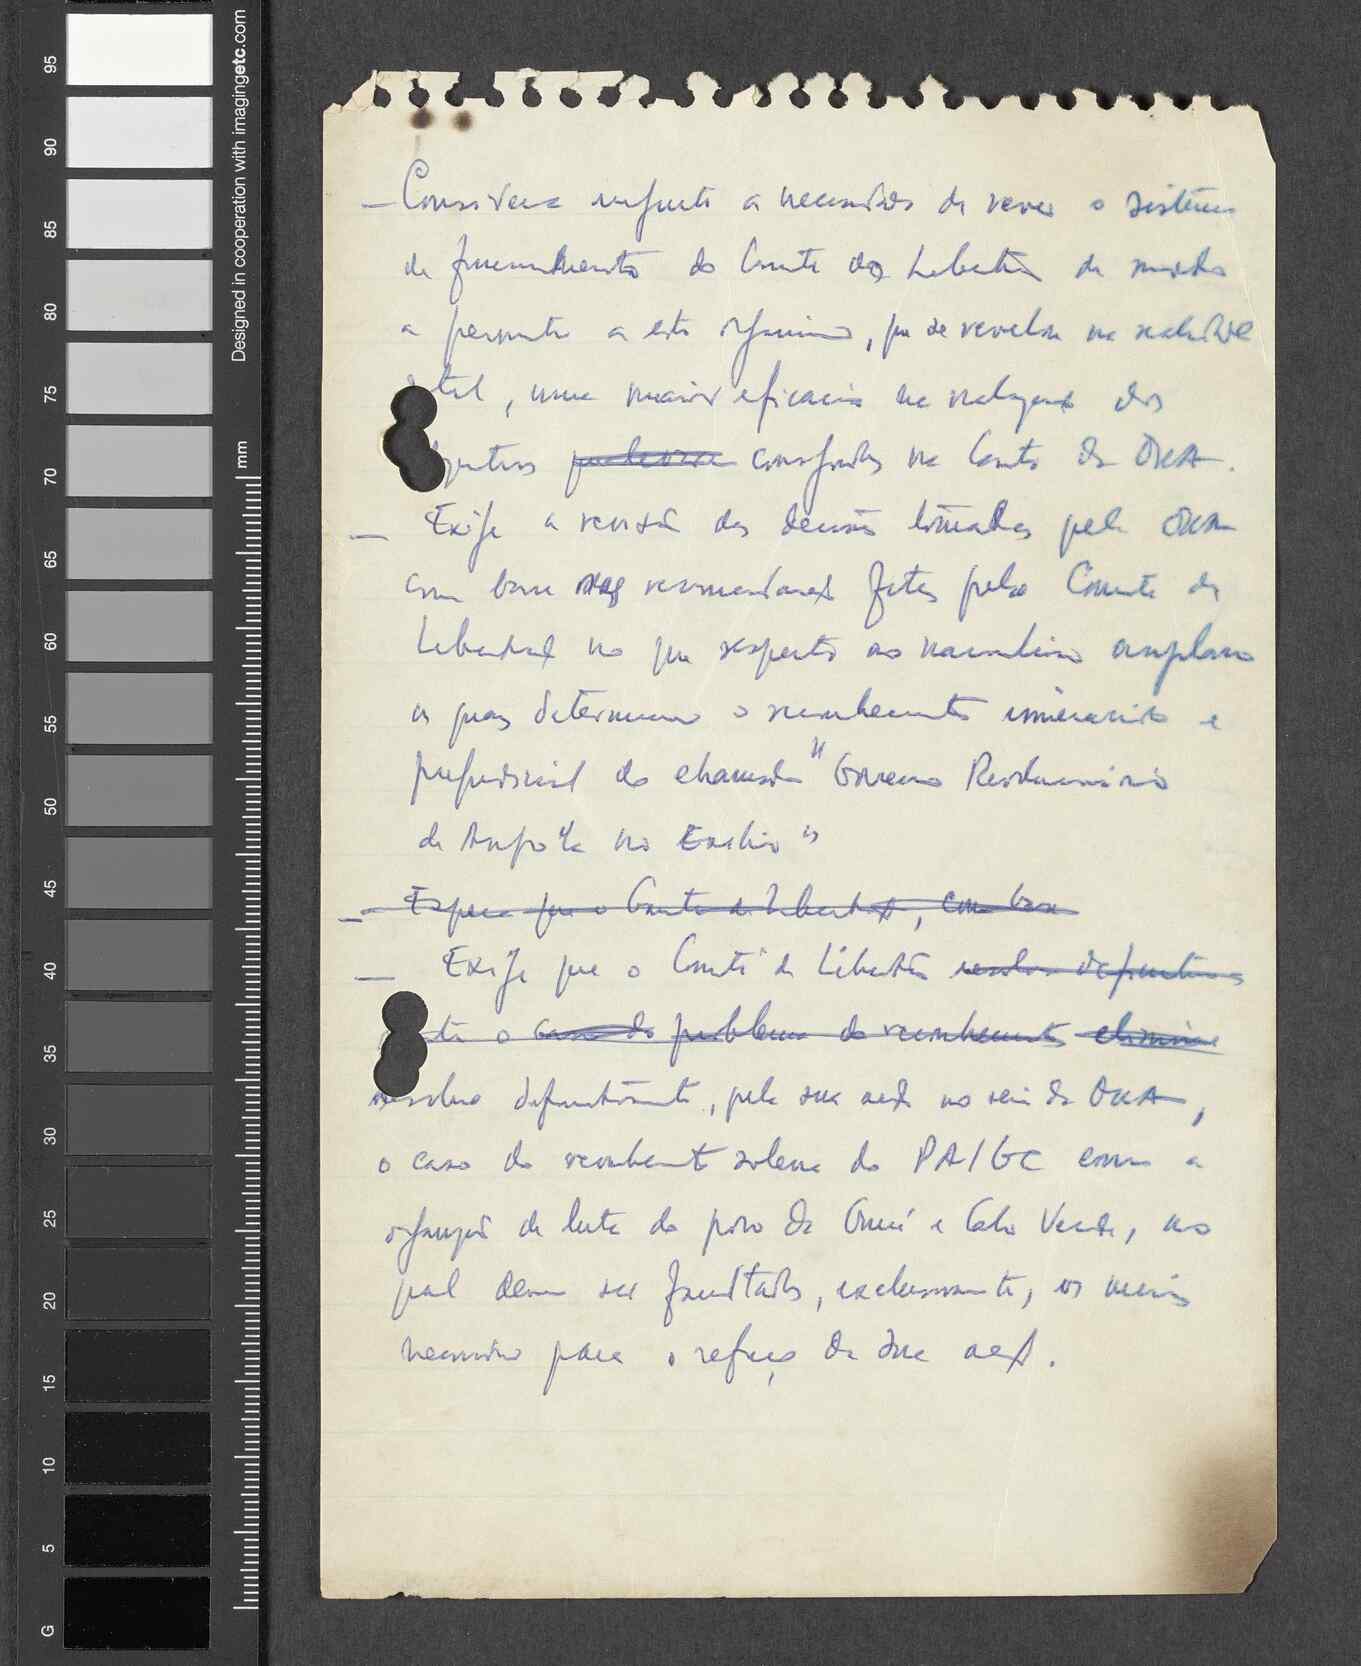 95
90
85
80
75
70
65
60
55
50
45
40
35
30
25
20
15
10
5
G
mm
Designed in cooperation with imagingetc.com
— Considera urgente a necessidade de rever o sistema
de financiamento do Comité de Libertação de modo
a permitir a este organismo, que se revelou na realidade
útil, uma maior eficácia na realização dos
consignados na Carta da OUA.
— Exige a revisão das decisões tomadas pela OUA
com base nas recomendações feitas pelo Comité de
Libertação no que respeita ao nacionalismo angolano
as quais determinaram o reconhecimento e
prejudicial do chamado "Governo Revolucionário
de Angola no Exílio"
— Espera que o Comité de Libertação, com base
— Exige que o Comité de Libertação resolva definitiva
o caso do problema do reconhecimento
resolva definitivamente, pela sua acção no seio da OUA,
o caso do reconhecimento solene do PAIGC como a
organização de luta do povo da Guiné e Cabo Verde, ao
qual devem ser facultados, exclusivamente, os meios
necessários para o reforço da sua acção.